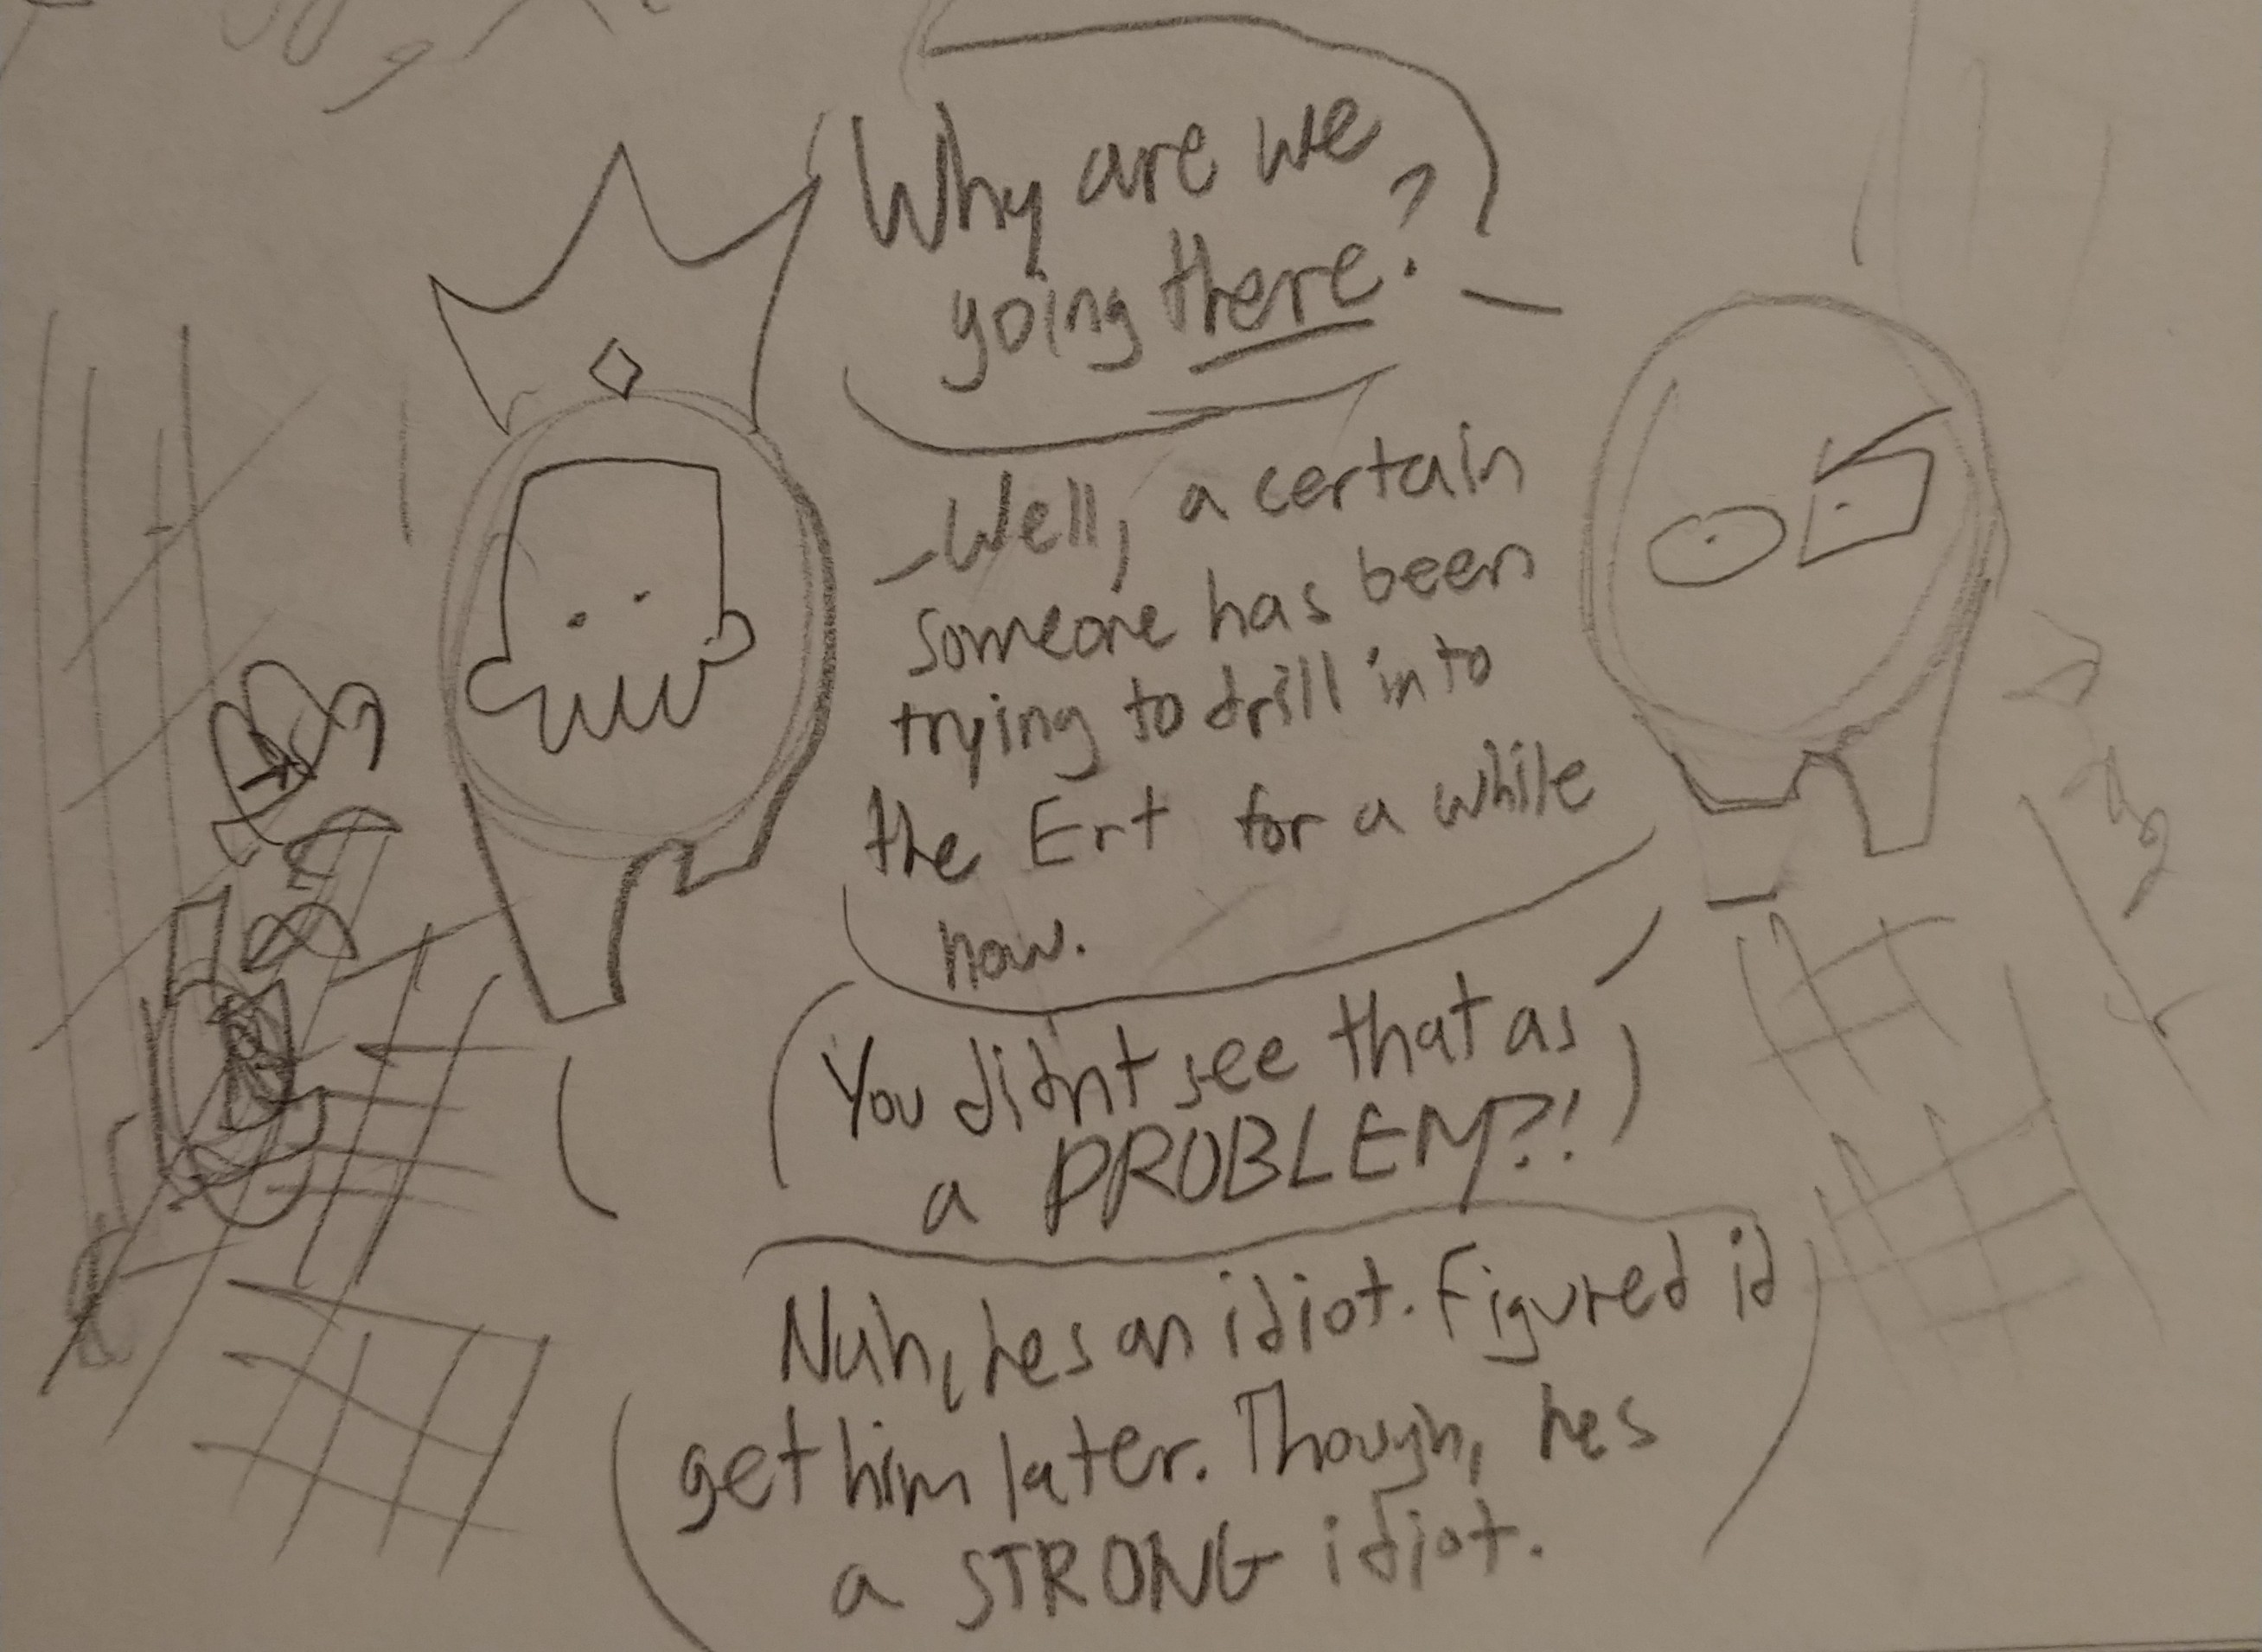 Why are we
going there?
Well, a certain
someone has been
trying to drill into
the Ert for a while
now.
You didnt see that as
a PROBLEM?!
Nuh, hes an idiot. Figured id
get him later. Though, hes
a STRONG idiot.